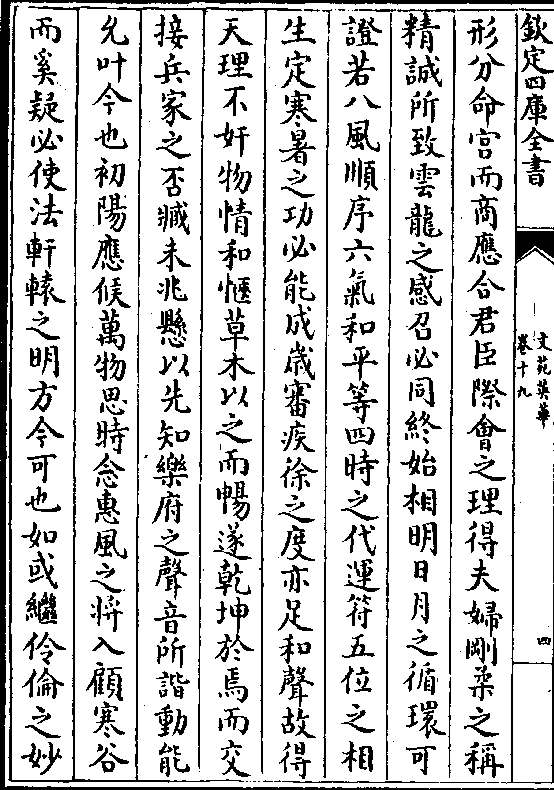 欽定四庫全書
文苑英華
卷十九
四
形分命宫而商應合君臣際會之理得夫婦剛柔之稱
精誠所致雲龍之感召必同終始相明日月之循環可
證若八風順序六氣和平等四時之代運符五位之相
生定寒暑之功必能成歲審疾徐之度亦足和聲故得
天理不奸物情和愜草木以之而暢遂乾坤於焉而交
接兵家之否臧未兆懸以先知樂府之聲音所諧動能
允叶今也初陽應候萬物思時念惠風之將入顧寒谷
而奚疑必使法軒轅之明方今可也如或繼伶倫之妙